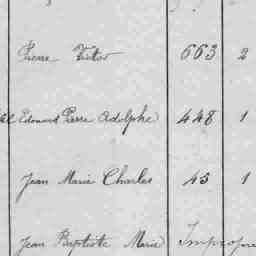 Pierre Victor 663 2
Edouard Pierre Adolphe 448 1
Jean Marie Charles 45 1
Jean Baptiste Marie Impropre